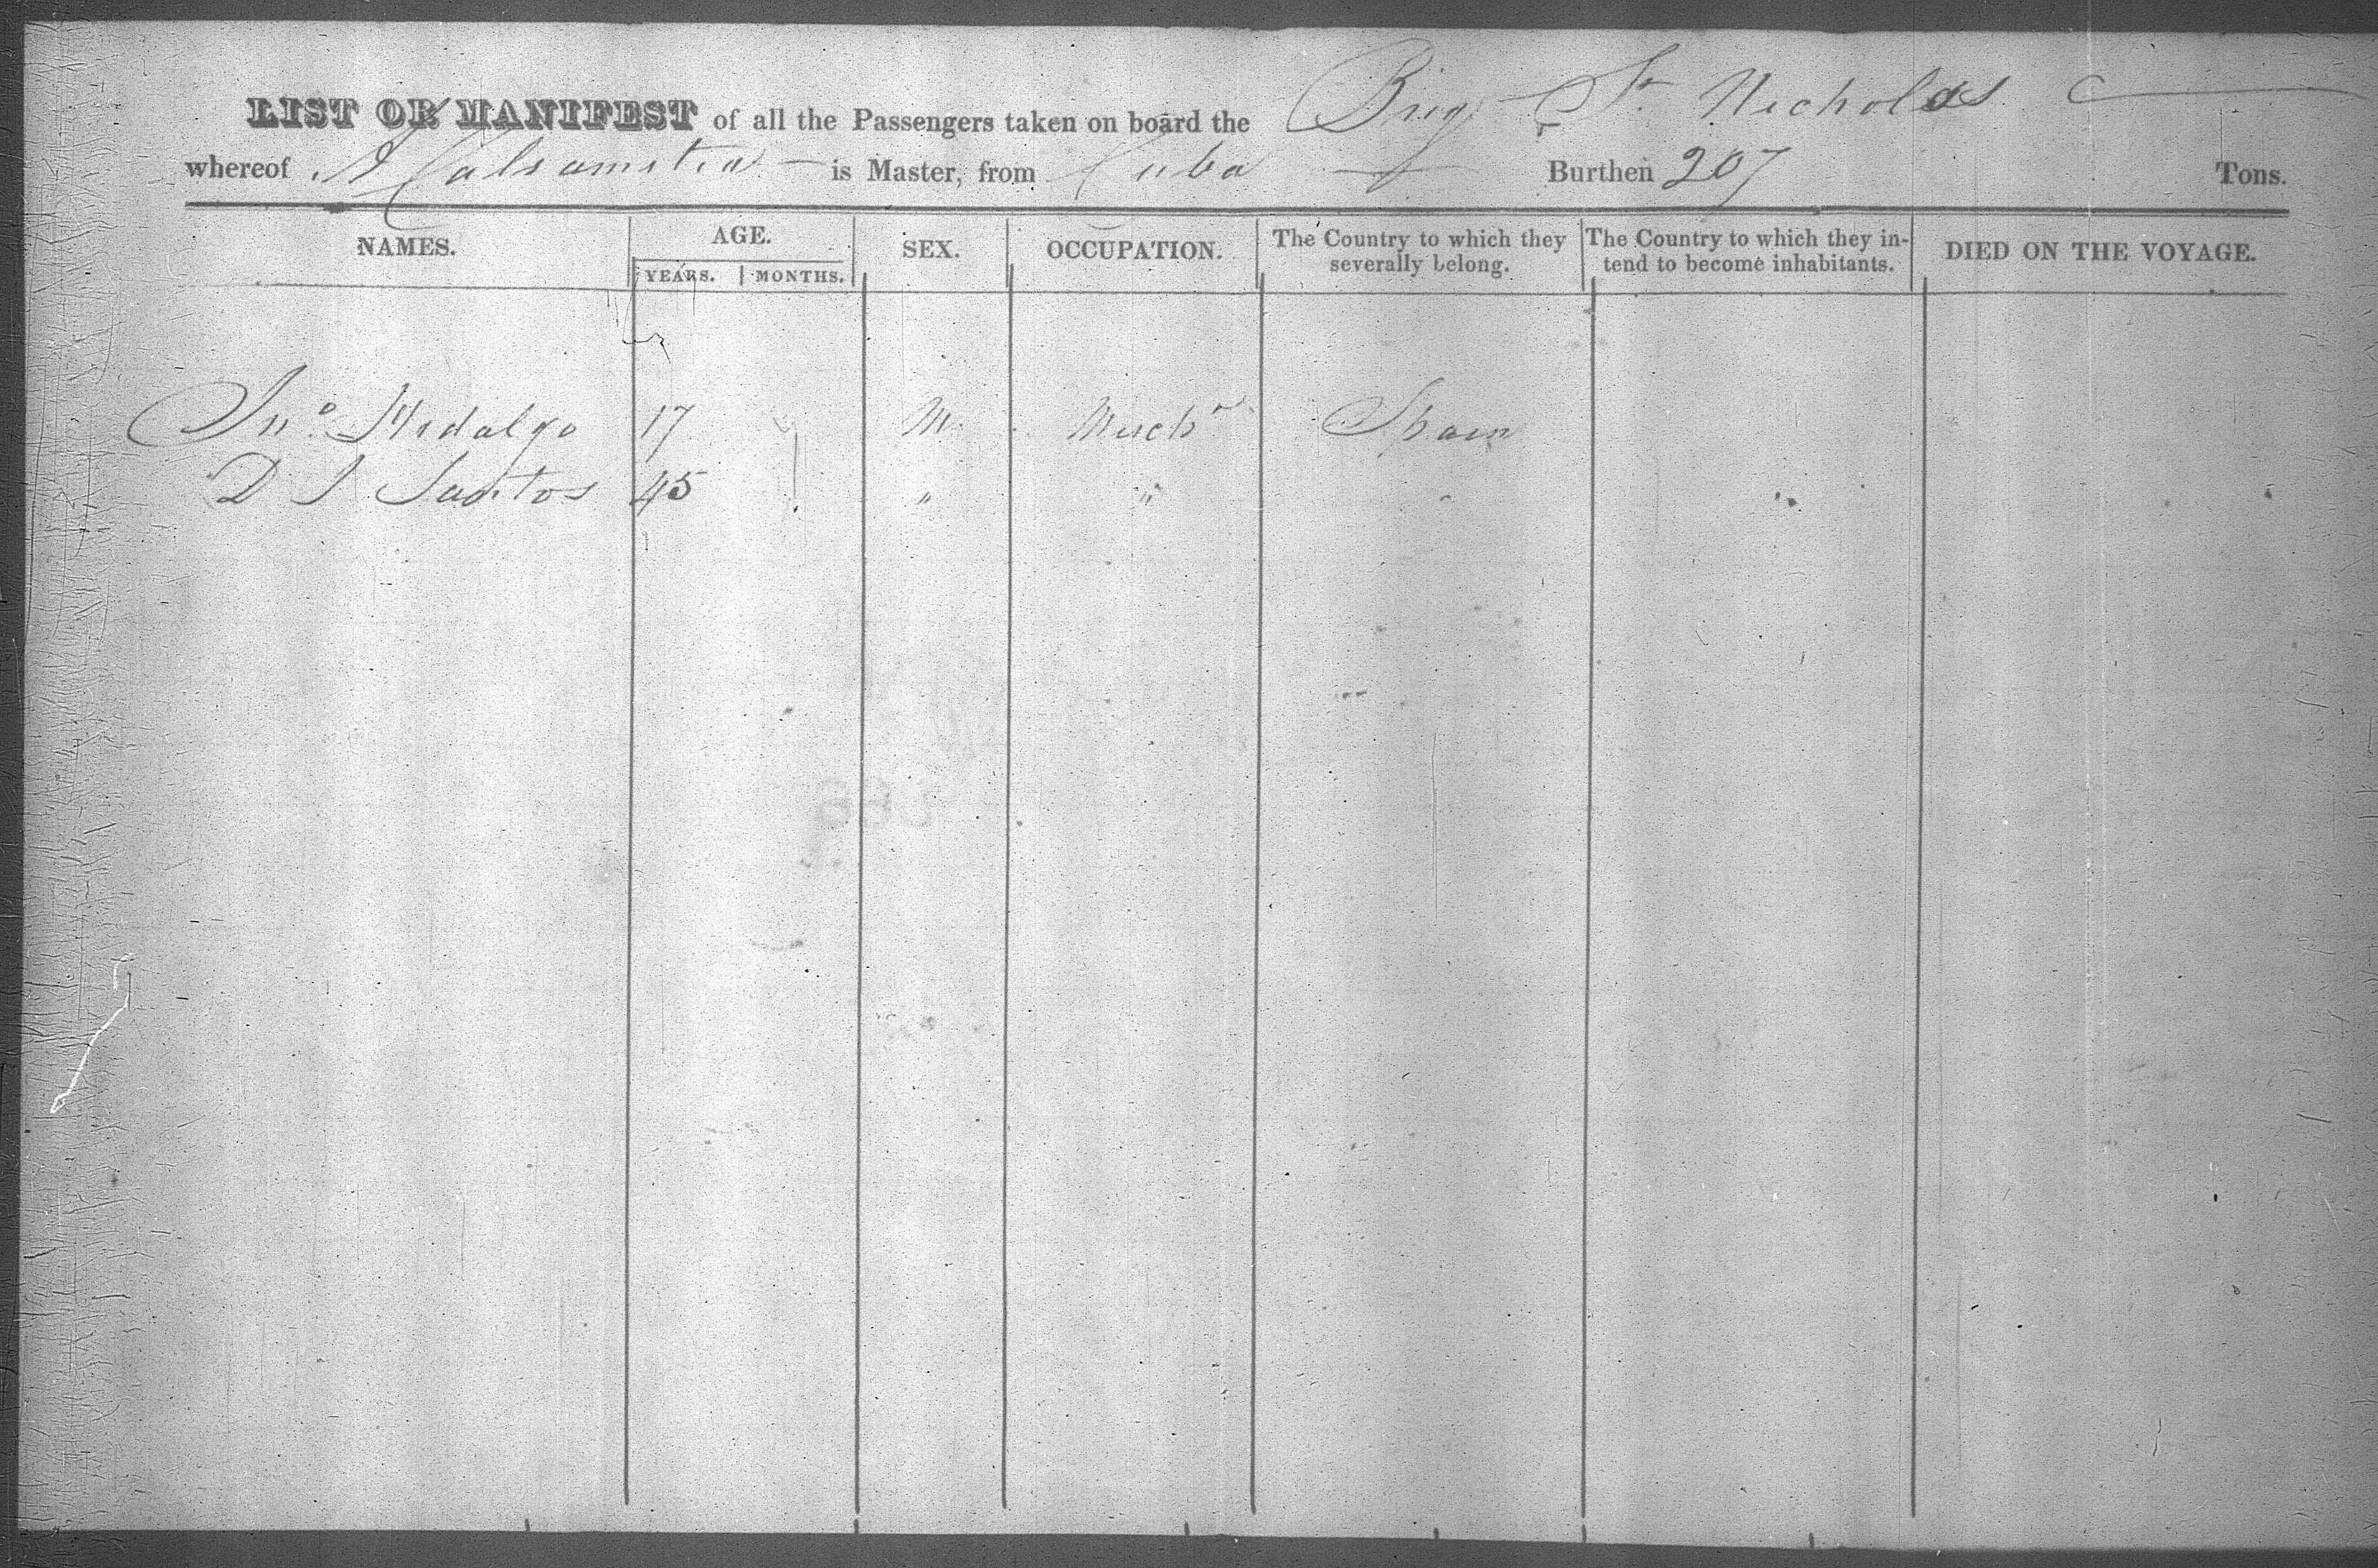 LIST OR MANIFEST of all the Passengers taken on board the Brig St Nicholas
whereof is Master, from Cuba Burthen 207 Tons.
NAMES. AGE. SEX. OCCUPATION. The Country to which they severally belong. The Country to which they intend to become inhabitants. DIED ON THE VOYAGE.
YEARS. MONTHS.
Jno. Hidalgo 17 M. Mercht Spain
D J Santos 45 " "